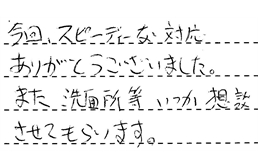 今回、スピーディーな対応
ありがとうございました。
また洗面所等いつか想談
させてもらいます。